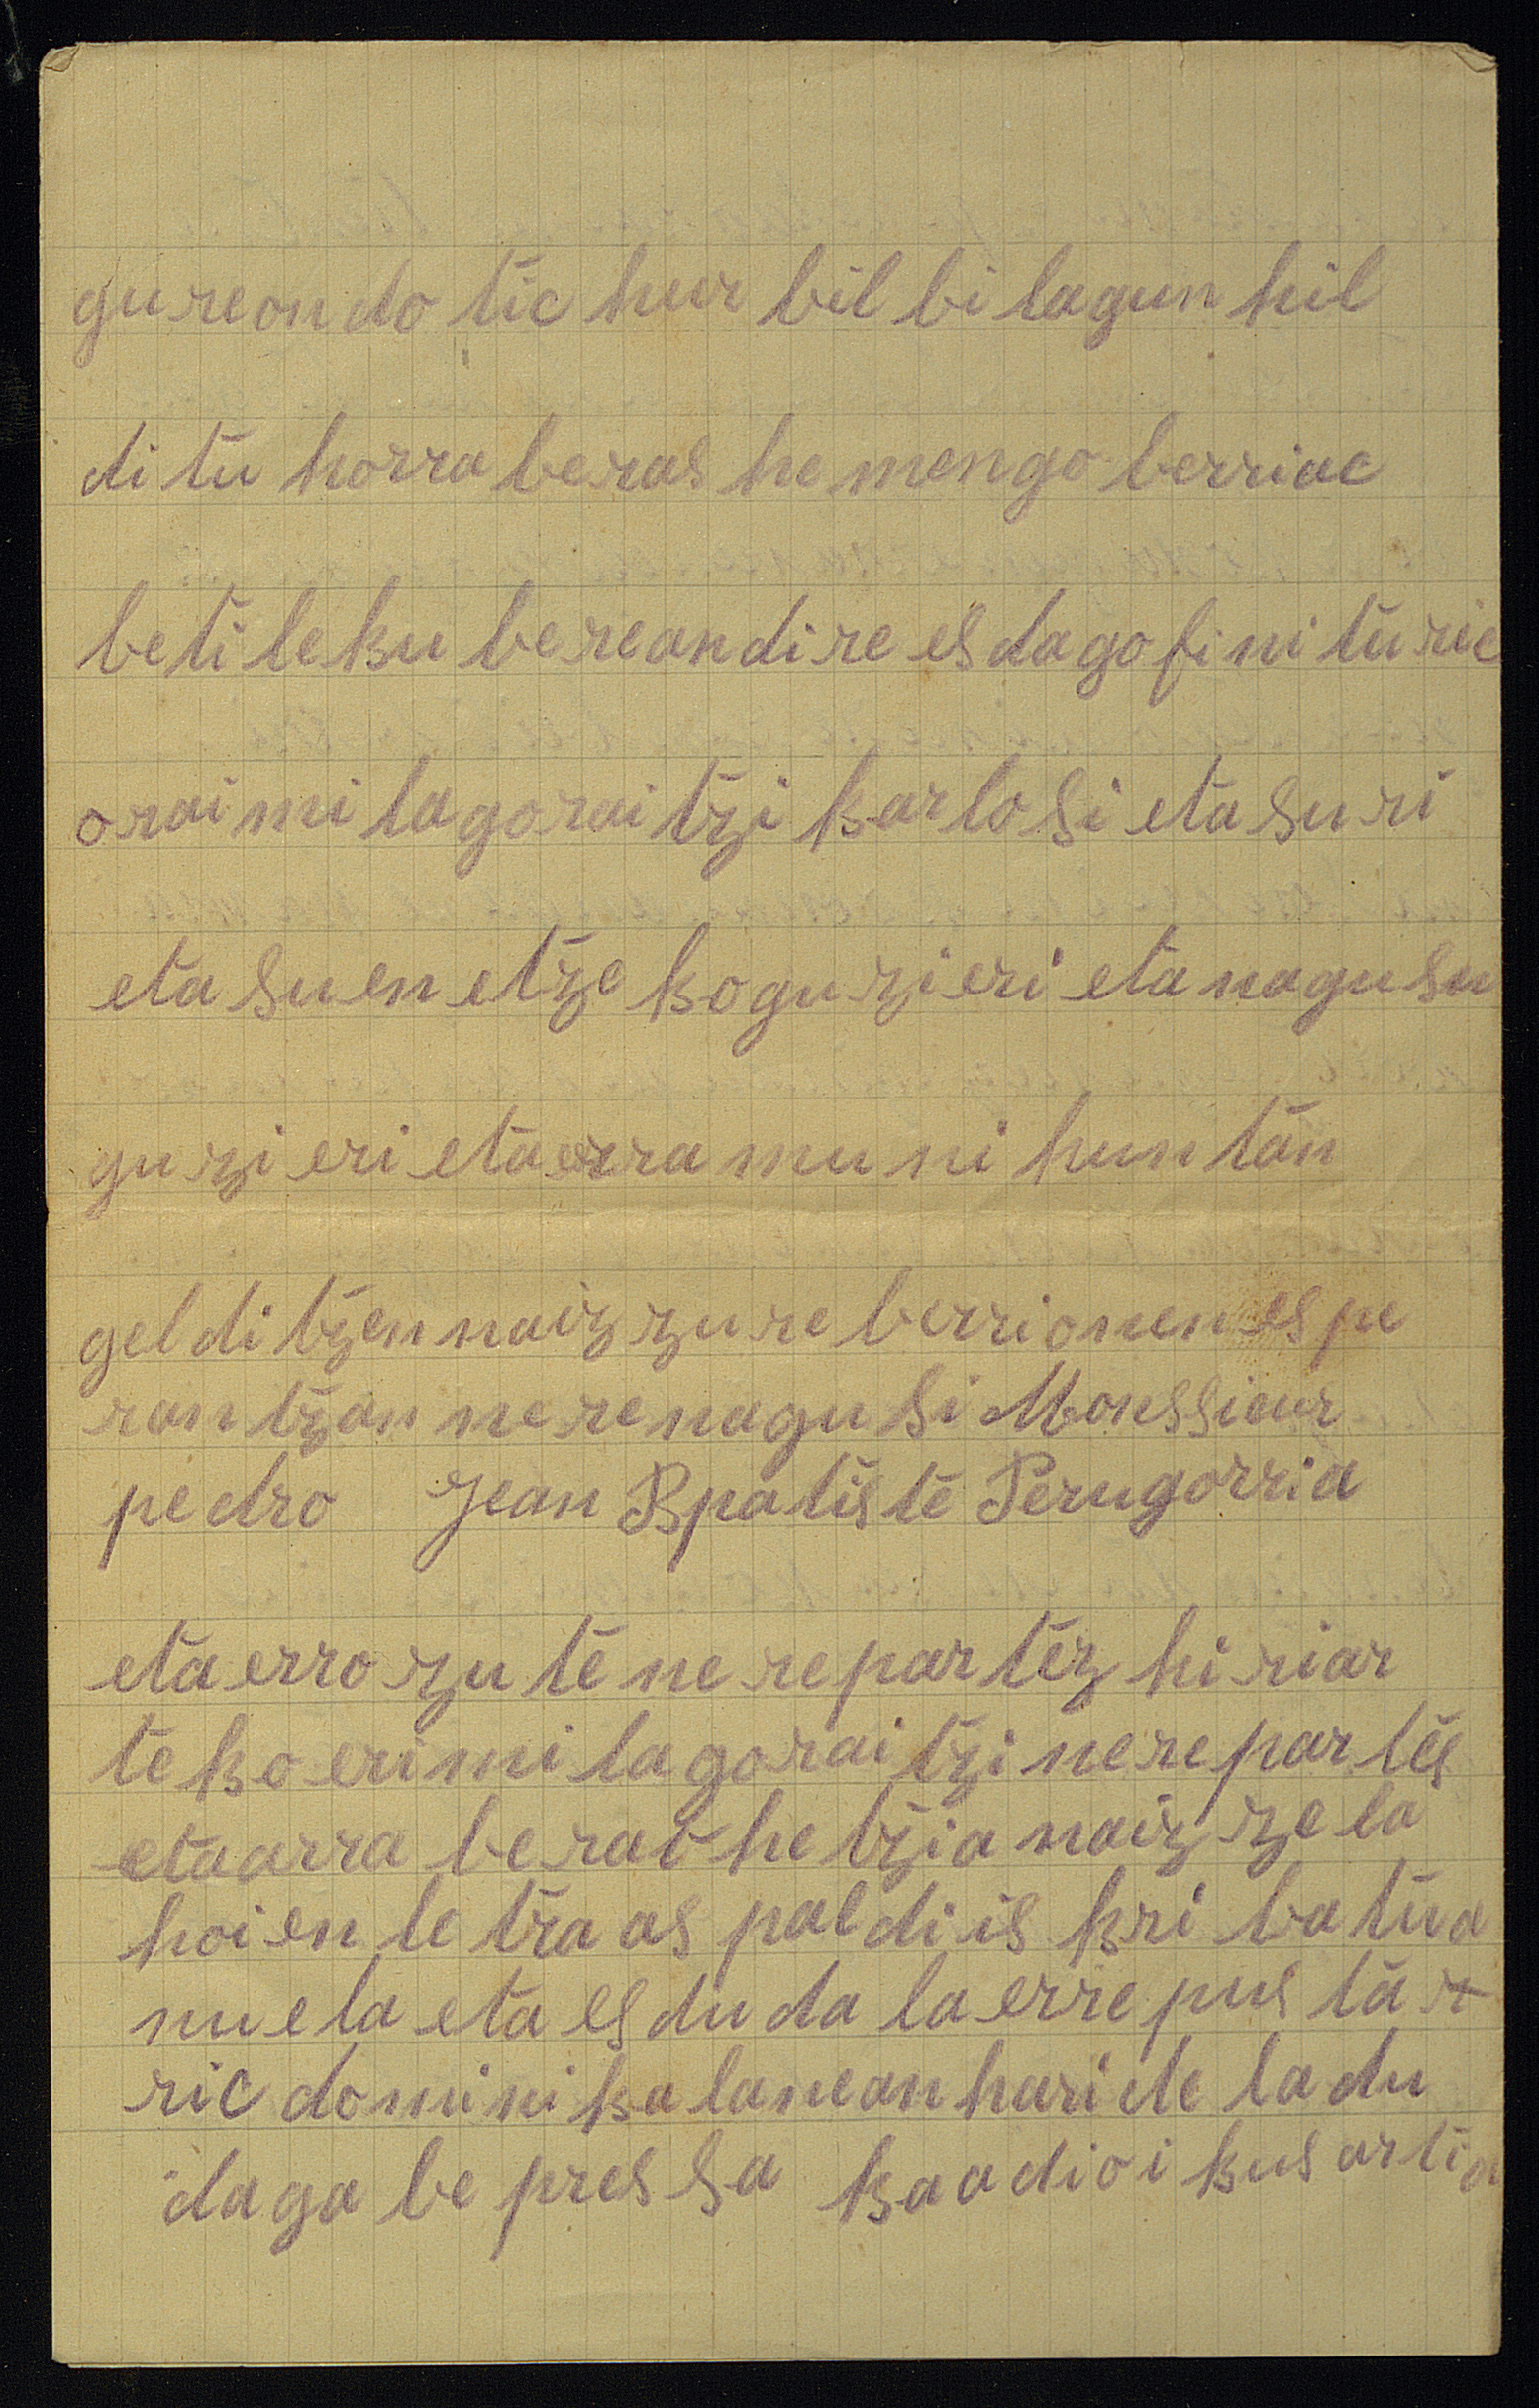 gureon do tic hur bil bi lagun hil
di tu horra beras he mengo berriac
beti leku berean dire es dago fini turic
orai mi lagorai tzi karlosi eta suri
eta suen etze ko guzieri eta nagusu
guzi eri eta erra mu ni hun tan
geldi tzen naiz zure berri onen es pe
ran tzan nere nagu si Monssieur
pedro Jean Bpatiste Perugorria
eta erro zu te ne re partez hi riar
te ko eri mi lagorai tzi nere partes
eta arra berat he tzia naiz ze la
hoi en le tra as paldi is kri ba tua
nue la eta es du da la erre pus ta r
ric domini ka lanean hari de la du
daga be pres sa ka adio i kus artia